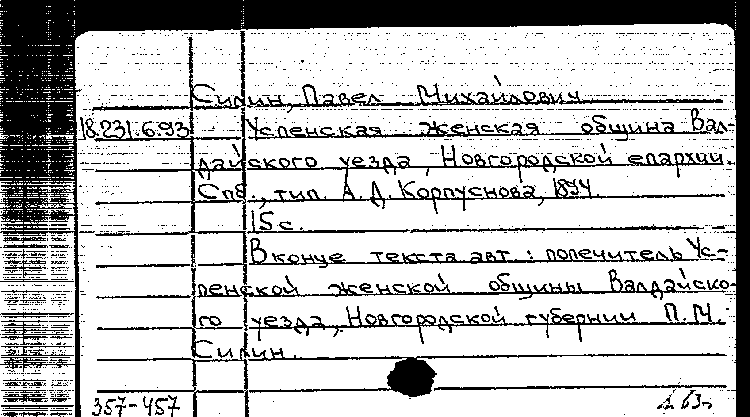 Силин, Павел Михайлович
18.231.6.93 Успенская женская община Вал-
дайского уезда, Новгородской епархии.
Спб., тип. А. Д. Корпуснова, 1894.
15 с.
В конце текста авт.: попечитель Ус-
пенской женской общины Валдайско-
го уезда, Новгородской губернии П. М.
Силин.
357-457